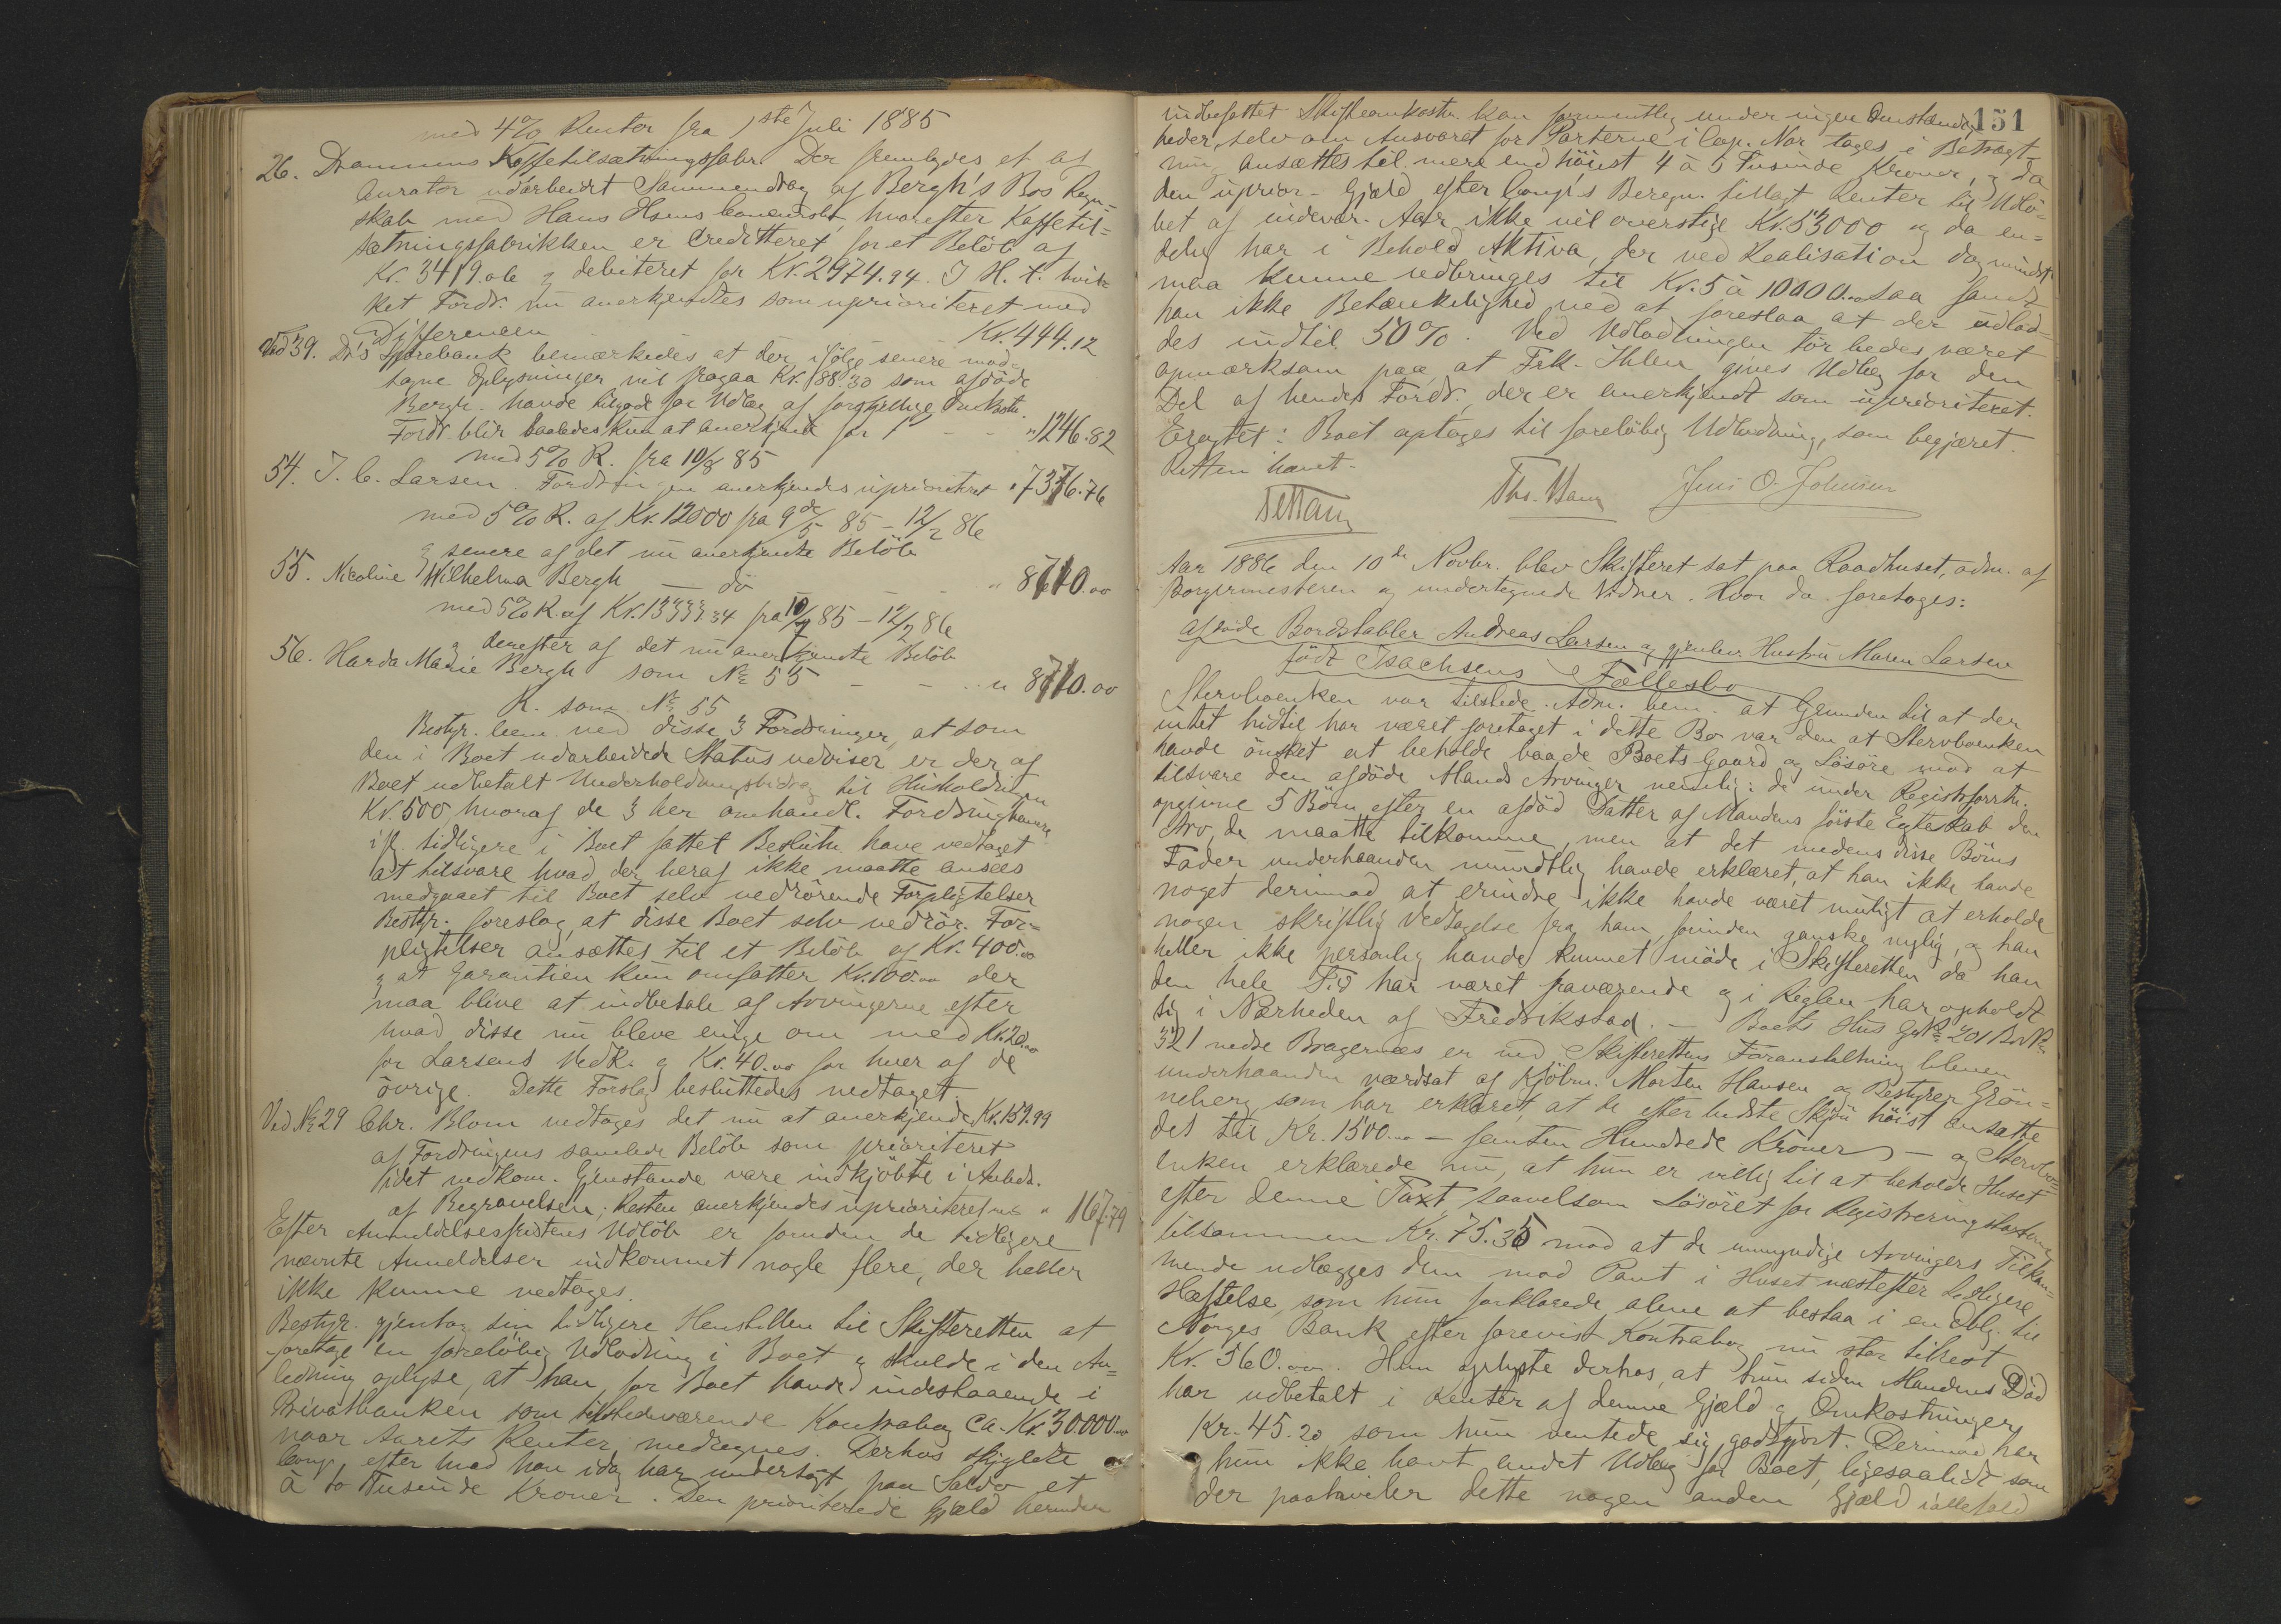 med 4% Renter fra 1ste Juli 1885
26. Drammens Kaffetilsætningsfabr. Der fremlagdes et af
Curator udarbeidet Sammendrag af Bergh's Bos Regn-
skab med Hans Hsens Concursbo, hvorefter Kaffetil-
sætningsfabrikken er Crediteret for et Beløb af
Kr. 3419.06 og debiteret for Kr. 2974.94. I H. t. hvil-
ket Fordr. nu anerkjendtes som uprioriteret med
Differencen Kr. 444.12
Ved 39. Dr's Sparebank bemærkedes at der ifølge senere mod-
tagne Oplysninger vil fragaa Kr. 88.30 som afdøde
Bergh havde tilgode for Udlæg af forskjellige Omkostn.
Fordr. blir saaledes kun at anerkjende for " 1246.82
med 5% R. fra 10/8 85
54. J. C. Larsen. Fordringen anerkjendes uprioriteret " 7376.76
med 5% R. af Kr. 12000 fra 9de/5 85 - 12/2 86
& senere af det nu anerkjendte Beløb
55. Nicoline Wilhelma Bergh — do — " 8710.00
med 5% R. af Kr. 13333.34 fra 10/7 85 - 12/2 86
& derefter af det nu anerkjendte Beløb
56. Harda Marie Bergh som No 55 - - " 8710.00
R. som No 55
Bestyr. bem. ved disse 3 Fordringer, at som
den i Boet udarbeidede Status udviser er der af
Boet udbetalt Underholdningsbidrag til Husholdningen
Kr. 500, hvoraf de 3 her omhandl. Fordringshavere
iflg. tidligere i Boet fattet Beslutn. have vedtaget
at tilsvare hvad der heraf ikke maatte ansees
medgaaet til Boet selv vedrørende Forpligtelser
Bestyr. foreslog, at disse Boet selv vedrør. For-
pligtelser ansættes til et Beløb af Kr. 400.00
& at Garantien kun omfatter Kr. 100.00 der
maa blive at indbetale af Arvingerne efter
hvad disse nu bleve enige om med Kr. 20.00
for Larsens Vedk. & Kr. 40.00 for hver af de
øvrige. Dette Forslag besluttedes vedtaget.
Ved No 29 Chr. Blom vedtages det nu at anerkjende Kr. 159.99
af Fordringens samlede Beløb som prioriteret
idet vedkom. Gjenstande vare indkjøbte i Anledn.
af Begravelsen; Resten anerkjendes uprioriteret med " 167.79
Efter Anmeldelsesfristens Udløb er foruden de tidligere
nævnte Anmeldelser indkommet nogle flere, der heller
ikke kunne vedtages.
Bestyr. gjentog sin tidligere Henstillen til Skifteretten at
foretage en foreløbig Udlodning i Boet & skulde i den An-
ledning oplyse, at han for Boet havde indestaaende i
Privatbanken som tilstedeværende Kontrabog Ca. Kr. 30.000.00
naar Aarets Renter medregnes. Derhos skyldte
Comp. efter hvad han idag har undersøgt paa Saldo et
à to Tusinde Kroner. Den prioriterede Gjæld herunder
151
indbefattet Skifteomkostn. kan formentlig under ingen Omstændig-
heder, selv om Ansvaret for Parterne i Cop. Nor tages i Betragt-
ning ansættes til mere end høiest 4 à 5 Tusinde Kroner, & da
den uprior. Gjæld efter Comp's Beregn. tillagt Renter til Udlø-
bet af indevær. Aar ikke vil overstige Kr. 53000 og da en-
delig har i Behold Aktiva, der ved Realisation dog mindst
maa kunne udbringes til Kr. 5 à 10000.00 saa fandt
han ikke Betænkelighed ved at foreslaa at der udlod-
des indtil 50%. Ved Udlodningen bør bedes været
opmærksom paa, at Frk. Ihlen gives Udlæg for den
Del af hendes Fordr., der er anerkjendt som uprioriteret.
Eragtet: Boet optages til foreløbig Udlodning, som begjæret.
Retten hævet.
Ths. Hans Jens O. Johnsen
Aar 1886 den 10de Novbr. blev Skifteret sat paa Raadhuset, adm. af
Borgermesteren og undertegnede Vidner. Hvor da foretoges:
afdøde Bordstabler Andreas Larsen og gjenlev. Hustru Maren Larsen
født Isachsens Fællesbo
Stervboenken var tilstede. Adm. bem. at Grunden til at der
intet hidtil har været foretaget i dette Bo var den at Stervboenken
havde ønsket at beholde baade Boets Gaard og Løsøre mod at
tilsvare den afdøde Mands Arvinger nemlig: de under Registrforretn.
opgivne 5 Børn efter en afdød Datter af Mandens første Egteskab den
Arv, de maatte tilkomme, men at det medens disse Børns
Fader underhaanden mundtlig havde erklæret, at han ikke havde
noget derimod at erindre ikke havde været muligt at erholde
nogen skriftlig Vedtagelse fra ham, førinden ganske nylig, og han
heller ikke personlig havde kunnet møde i Skifteretten da han
den hele Tid har været fraværende og i Reglen har opholdt
sig i Nærheden af Fredrikstad. — Boets Hus GNo 201 BNo
321 nedre Bragernæs er ved Skifterettens Foranstaltning bleven
underhaanden værdsat af Kjøbm. Morten Hansen og Bestyrer Grøn-
neberg som har erklæret, at de efter bedste Skjøn høist ansatte
det til Kr. 1500.00 — femten Hundrede Kroner — og Stervbo-
enken erklærede nu, at hun er villig til at beholde Huset
efter denne Taxt, saavelsom Løsøret for Registreringstaxten
tilsammen Kr. 75.35 mod at de umyndige Arvingers Tilkom-
mende udlægges dem mod Pant i Huset næstefter tidligere
Hæftelse, som hun forklarede alene at bestaa i en Oblg. til
Norges Bank efter forevist Kontrabog nu stor tilrest
Kr. 560.00. Hun oplyste derhos, at hun siden Mandens Død
har udbetalt i Renter af denne Gjæld & Omkostninger
Kr. 45.20 som hun ventede sig godtgjort. Derimod har
hun ikke havt andet Udlæg for Boet, ligesaalidt som
der paahviler dette nogen anden Gjæld iallefald